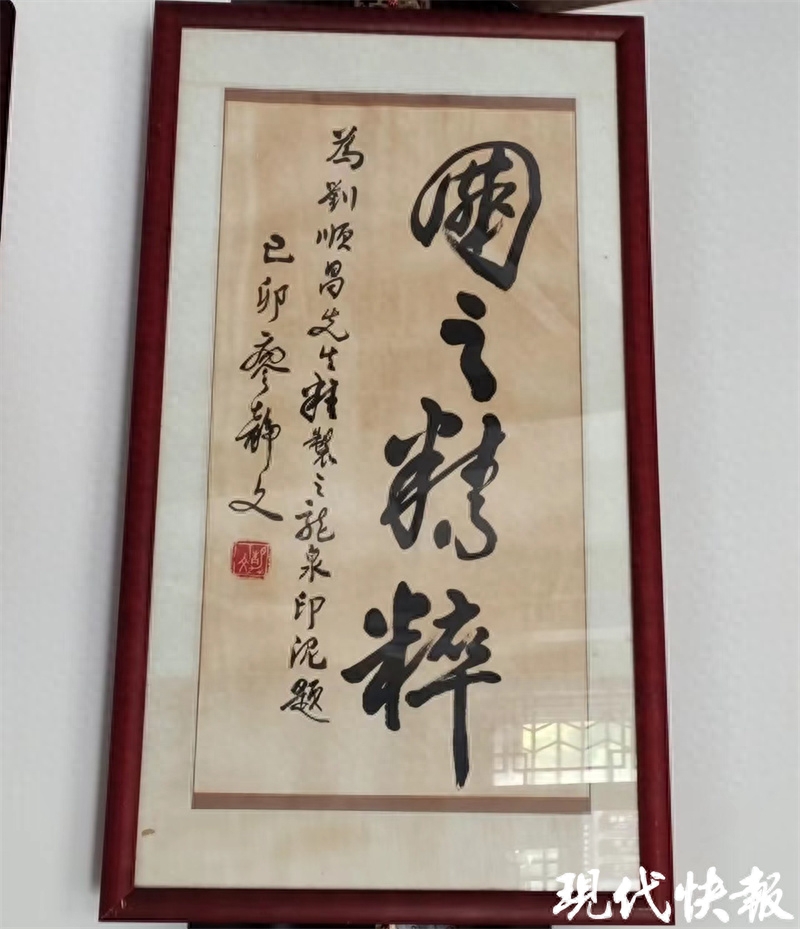 國之精粹
為劉順昌先生精製之龍泉印泥題
己卯廖靜文
現代快報